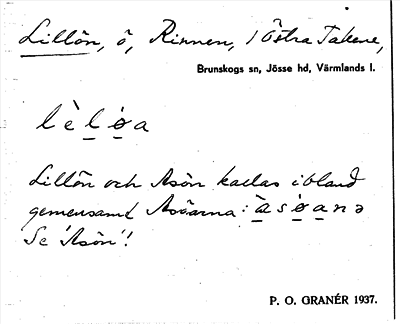 Lillön, ö, Rinnen, i Östra Takene,
Brunskogs sn, Jösse hd, Värmlands l.
lèḷø̣a
Lillön och Asön kallas ibland
gemensamt Asöarna: ä̀sø̣anə
Se 'Asön'!
P. O. GRANÉR 1937.